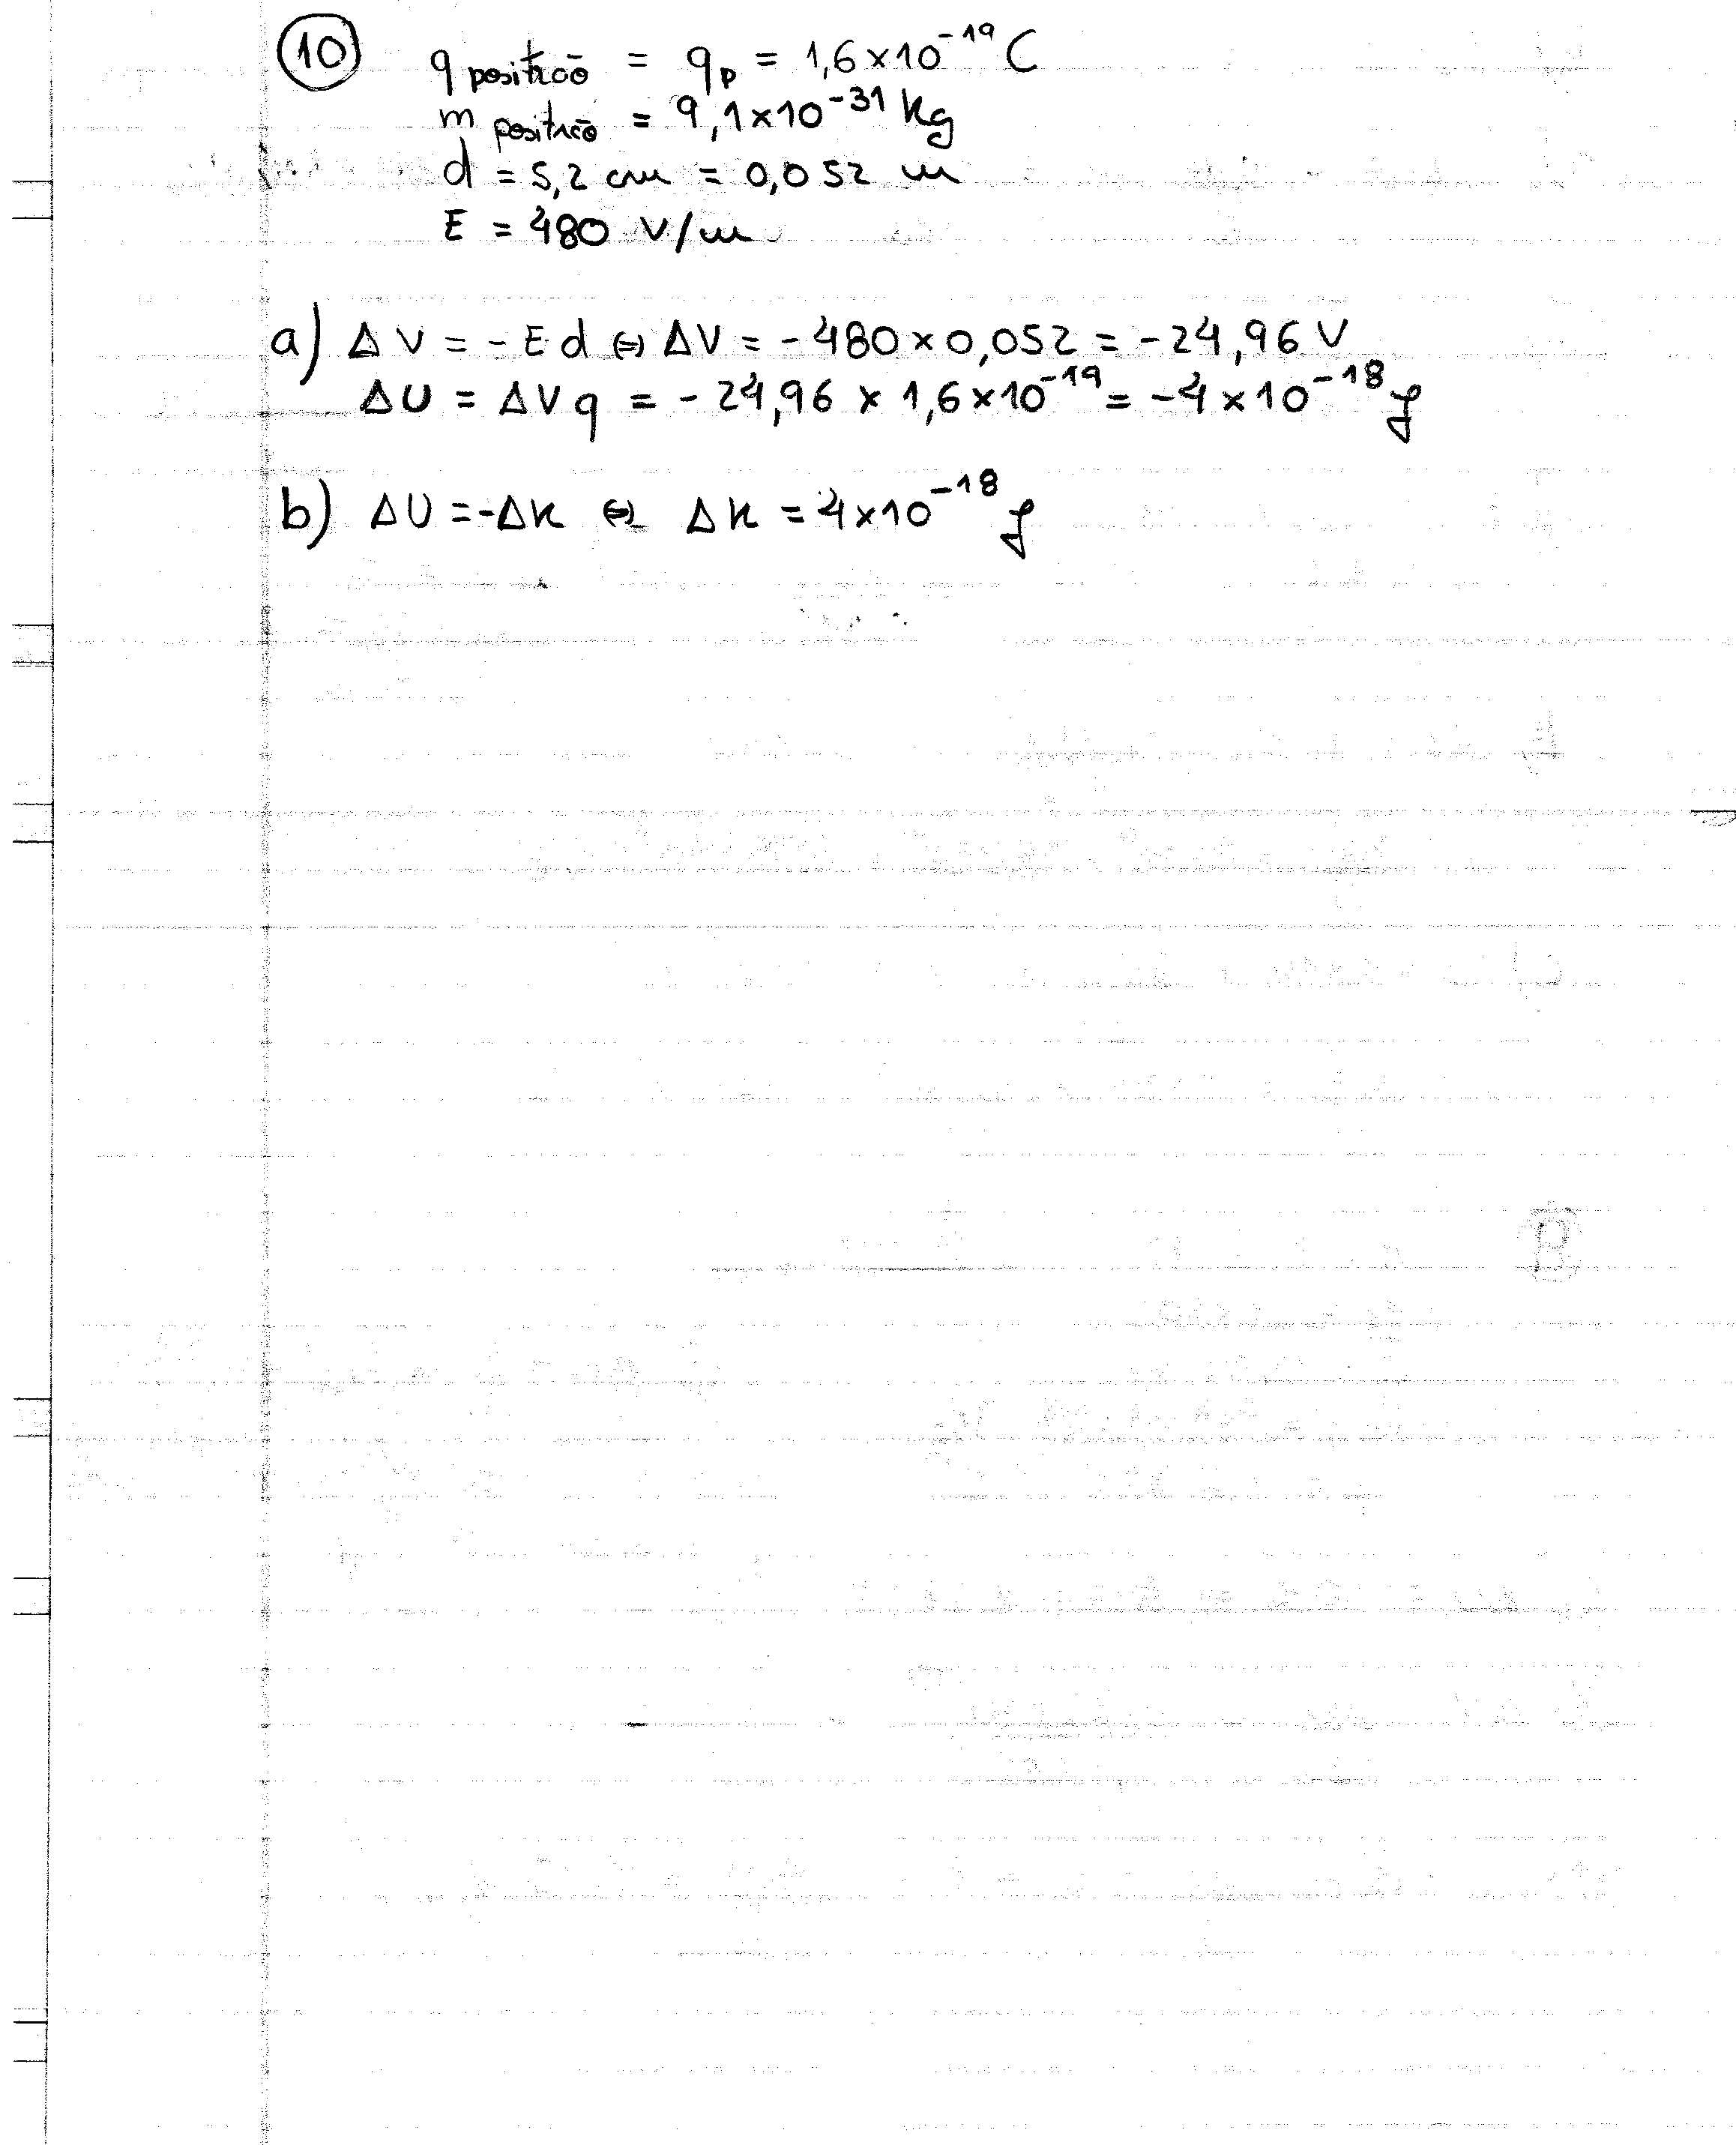 10 q positrão = qp = 1,6×10⁻¹⁹ C
m positrão = 9,1×10⁻³¹ kg
d = 5,2 cm = 0,052 m
E = 480 V/m
a) ΔV = - E d ⇔ ΔV = - 480 × 0,052 = - 24,96 V
ΔU = ΔV q = - 24,96 × 1,6×10⁻¹⁹ = - 4 × 10⁻¹⁸ J
b) ΔU = -ΔK ⇔ ΔK = 4×10⁻¹⁸ J